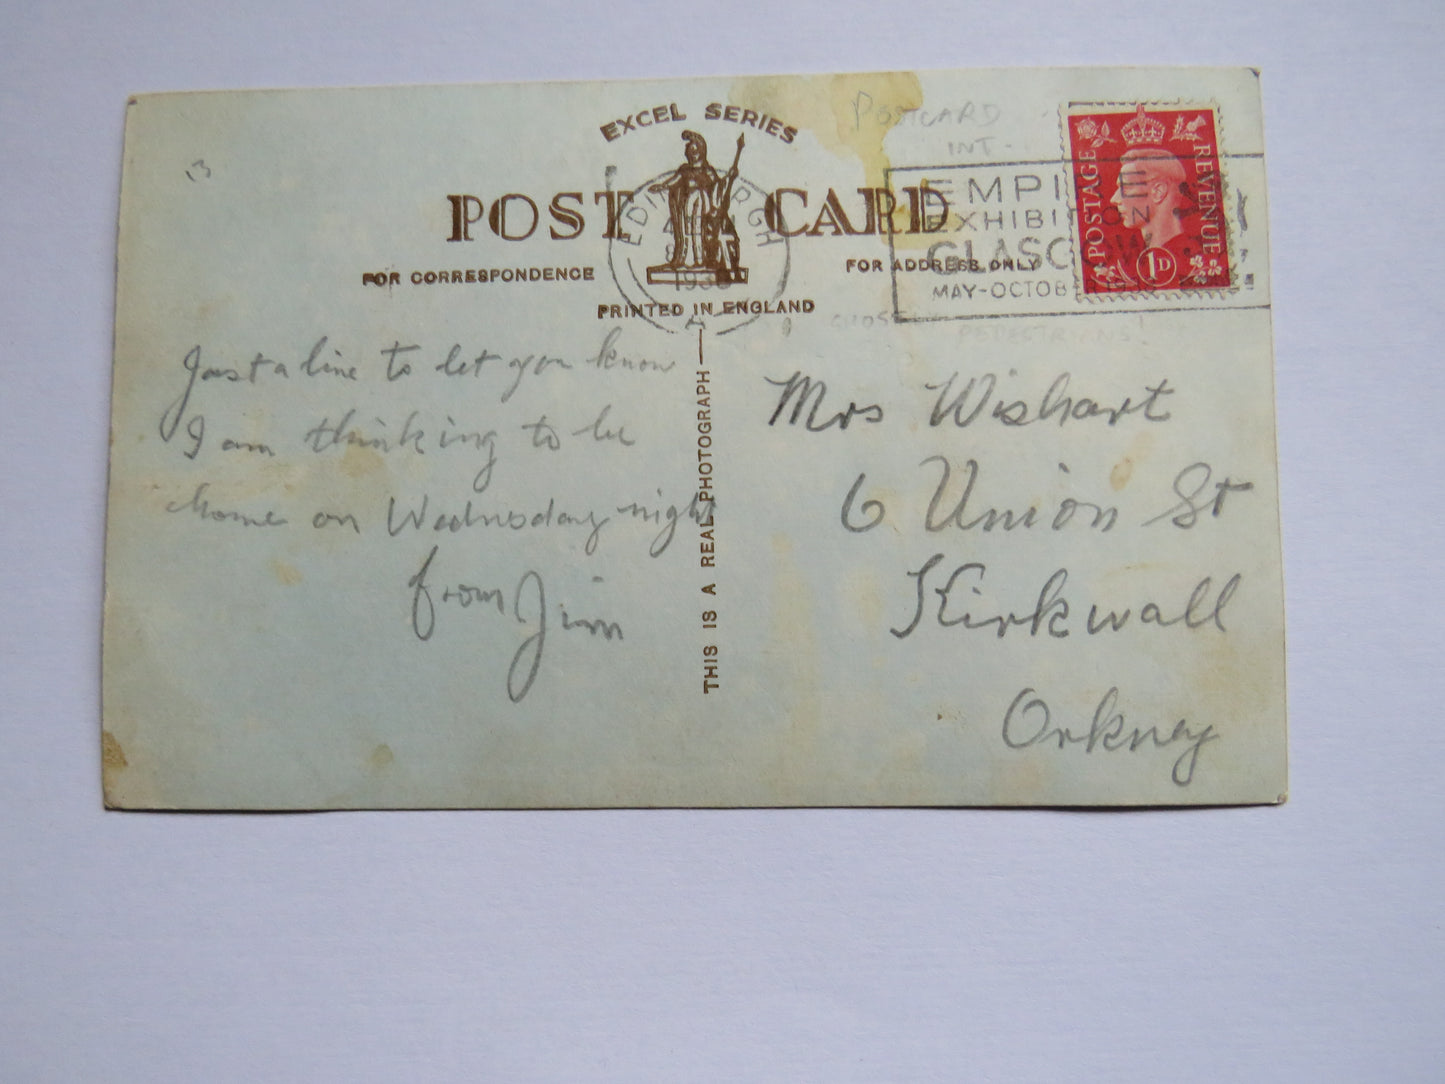 13
EXCEL SERIES
POST CARD
POSTCARD
INT.
EDINBURGH
1938
EMPIRE
EXHIBITION
GLASGOW
MAY-OCTOBER 1938
POSTAGE
REVENUE
1D
FOR CORRESPONDENCE
FOR ADDRESS ONLY
PRINTED IN ENGLAND
PEDESTRIANS!
THIS IS A REAL PHOTOGRAPH
Just a line to let you know
I am thinking to be
home on Wednesday night
from Jim
Mrs Wishart
6 Union St
Kirkwall
Orkney